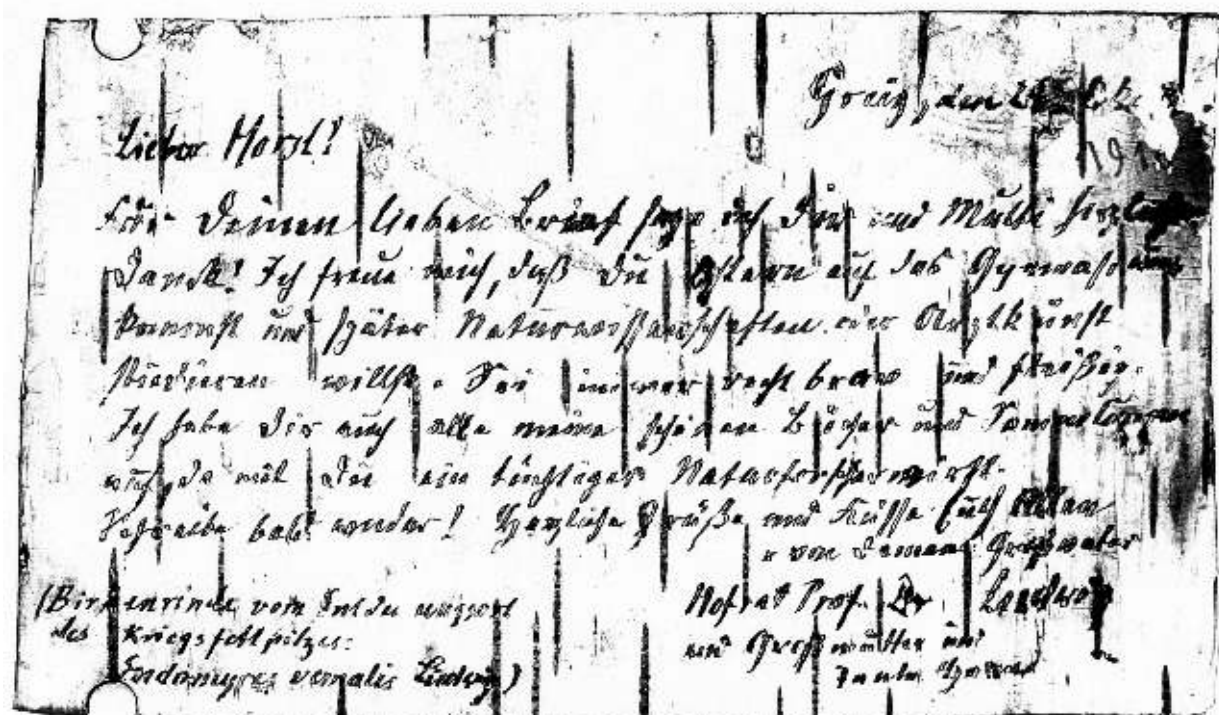 Greiz, den
191
Lieber Horst!
Für Deinen lieben Brief sage ich Dir und Mutti herzlichen
Dank! Ich freue mich, daß Du Ostern auf das Gymnasium
kommst und später Naturwissenschaften oder Arztkunst
studieren willst. Sei immer recht brav und fleißig.
Ich habe Dir auch alle meine schönen Bücher und
auf, damit Du ein tüchtiger Naturforscher wirst.
Schreibe bald wieder! Herzliche Grüße und Küsse Euch Allen
von Deinem Großvater
Hofrat Prof. Dr. Ludwig
und Großmutter und
Tante
(Birkenrinde vom
des Kriegsfettpilzes:
Endomyces vernalis Ludwig)